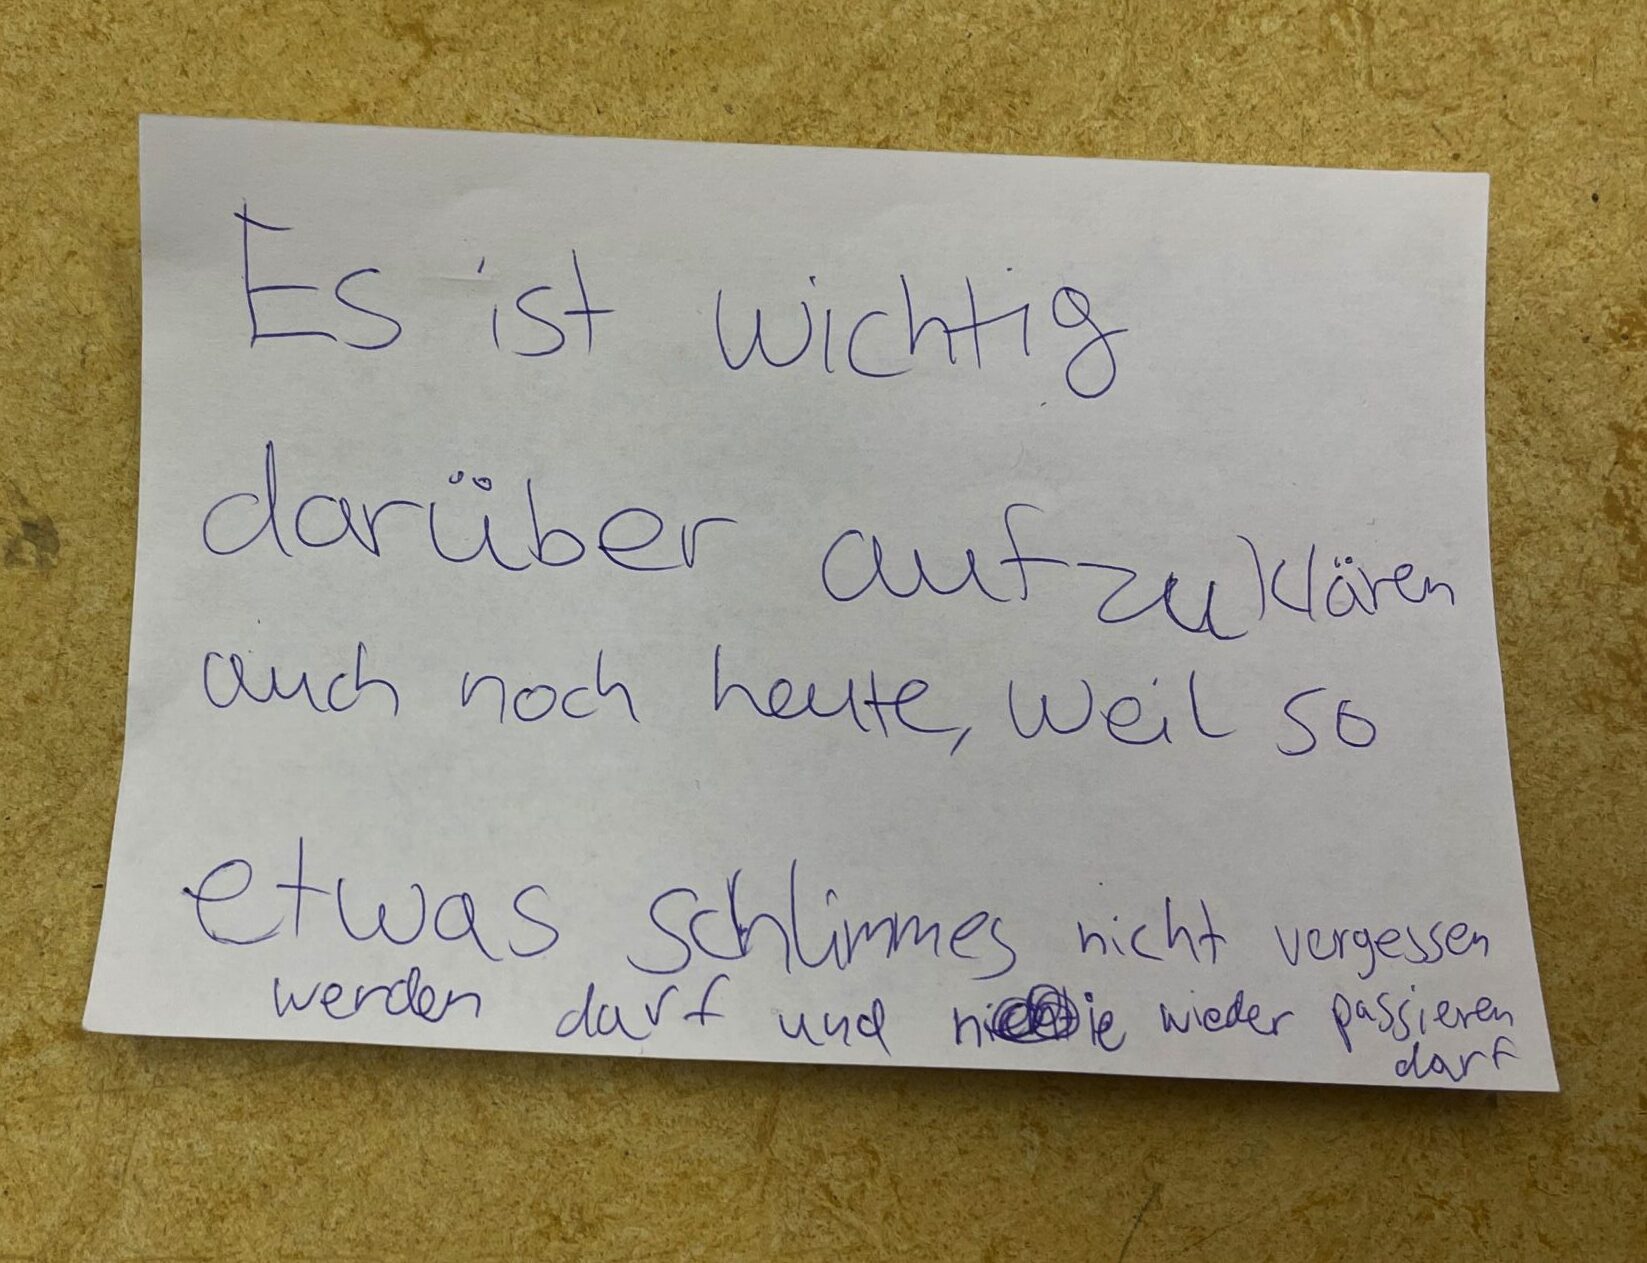 Es ist wichtig
darüber aufzuklären
auch noch heute, weil so
etwas schlimmes nicht vergessen
werden darf und nie wieder passieren
darf